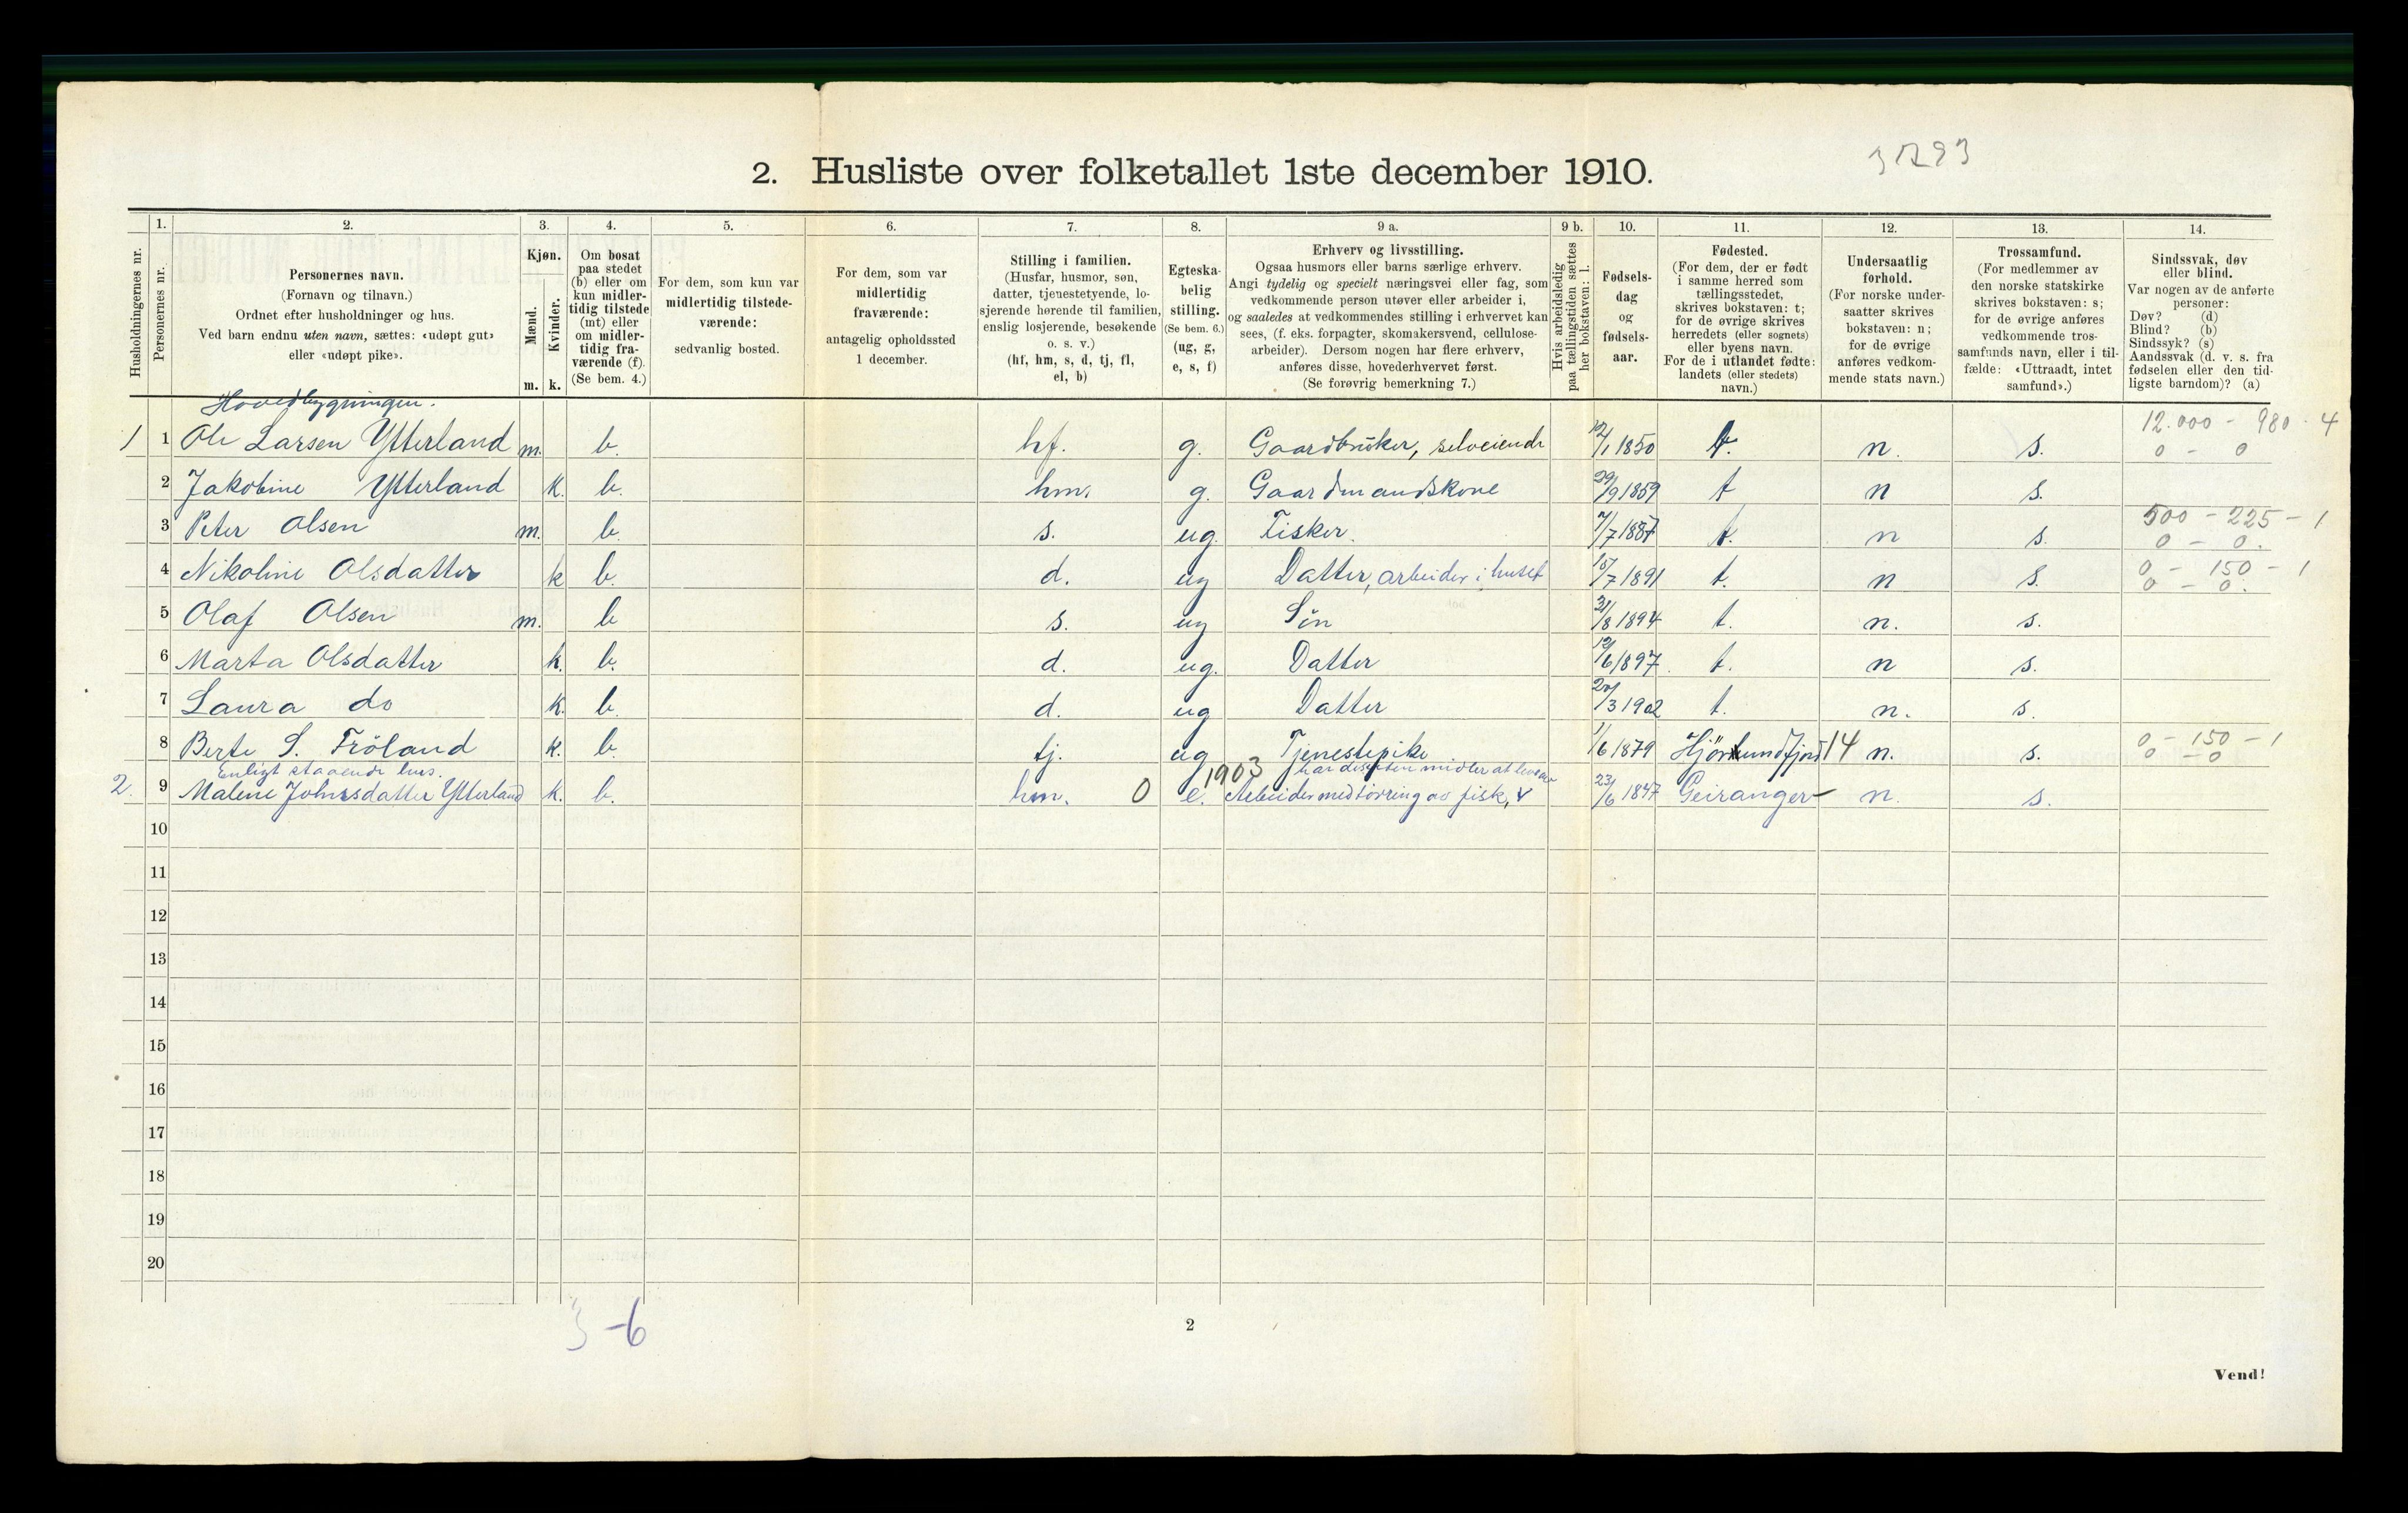 3 1293
2. Husliste over folketallet 1ste december 1910.
Husholdningernes nr.
1. Personernes nr.
2. Personernes navn. (Fornavn og tilnavn.) Ordnet efter husholdninger og hus. Ved barn endnu uten navn, sættes: «udøpt gut» eller «udøpt pike».
3. Kjøn. Mænd. m. Kvinder. k.
4. Om bosat paa stedet (b) eller om kun midlertidig tilstede (mt) eller om midlertidig fraværende (f). (Se bem. 4.)
5. For dem, som kun var midlertidig tilstedeværende: sedvanlig bosted.
6. For dem, som var midlertidig fraværende: antagelig opholdssted 1 december.
7. Stilling i familien. (Husfar, husmor, søn, datter, tjenestetyende, losjerende hørende til familien, enslig losjerende, besøkende o. s. v.) (hf, hm, s, d, tj, fl, el, b)
8. Egteskabelig stilling. (Se bem. 6.) (ug, g, e, s, f)
9 a. Erhverv og livsstilling. Ogsaa husmors eller barns særlige erhverv. Angi tydelig og specielt næringsvei eller fag, som vedkommende person utøver eller arbeider i, og saaledes at vedkommendes stilling i erhvervet kan sees, (f. eks. forpagter, skomakersvend, cellulosearbeider). Dersom nogen har flere erhverv, anføres disse, hovederhvervet først. (Se forøvrig bemerkning 7.)
9 b. Hvis arbeidsledig paa tællingstiden sættes her bokstaven: l.
10. Fødselsdag og fødselsaar.
11. Fødested. (For dem, der er født i samme herred som tællingsstedet, skrives bokstaven: t; for de øvrige skrives herredets (eller sognets) eller byens navn. For de i utlandet fødte: landets (eller stedets) navn.)
12. Undersaatlig forhold. (For norske undersaatter skrives bokstaven: n; for de øvrige anføres vedkommende stats navn.)
13. Trossamfund. (For medlemmer av den norske statskirke skrives bokstaven: s; for de øvrige anføres vedkommende trossamfunds navn, eller i tilfælde: «Uttraadt, intet samfund».)
14. Sindssvak, døv eller blind. Var nogen av de anførte personer: Døv? (d) Blind? (b) Sindssyk? (s) Aandssvak (d. v. s. fra fødselen eller den tidligste barndom)? (a)
Hovedbygningen.
12.000 - 980 - 4
1 1 Ole Larsen Ytterland m. b. hf. g. Gaardbruker, selveiende 10/1 1850 t. n. s. 0 - 0
2 Jakobine Ytterland k. b. hm. g. Gaardmandskone 29/9 1859 t n s.
500 - 225 - 1
3 Peter Olsen m. b. s. ug. Fisker. 7/7 1887 t. n s. 0 - 0.
0 - 150 - 1
4 Nikoline Olsdatter k b. d. ug Datter, arbeider i huset 15/7 1891 t. n s. 0 - 0.
5 Olaf Olsen m. b s. ug Sön 31/8 1894 t. n. s.
6 Marta Olsdatter k. b. d. ug. Datter 12/6 1897. t. n s.
7 Laura do k. b. d. ug Datter 20/3 1902 t. n. s.
0 - 150 - 1
8 Berte S. Fröland k. b. tj. ug Tjenestepike 1/6 1879 Hjörundfjord 14 n. s. 0 - 0
Enligt staaende hus. 1903 har desuten midler at leve av
2. 9 Malene Johnsdatter Ytterland k. b. hm. 0 e. Arbeider med törring av fisk, v 23/6 1847 Geiranger - n. s.
10
11
12
13
14
15
16
17
18
19
20
3 - 6
2
Vend!